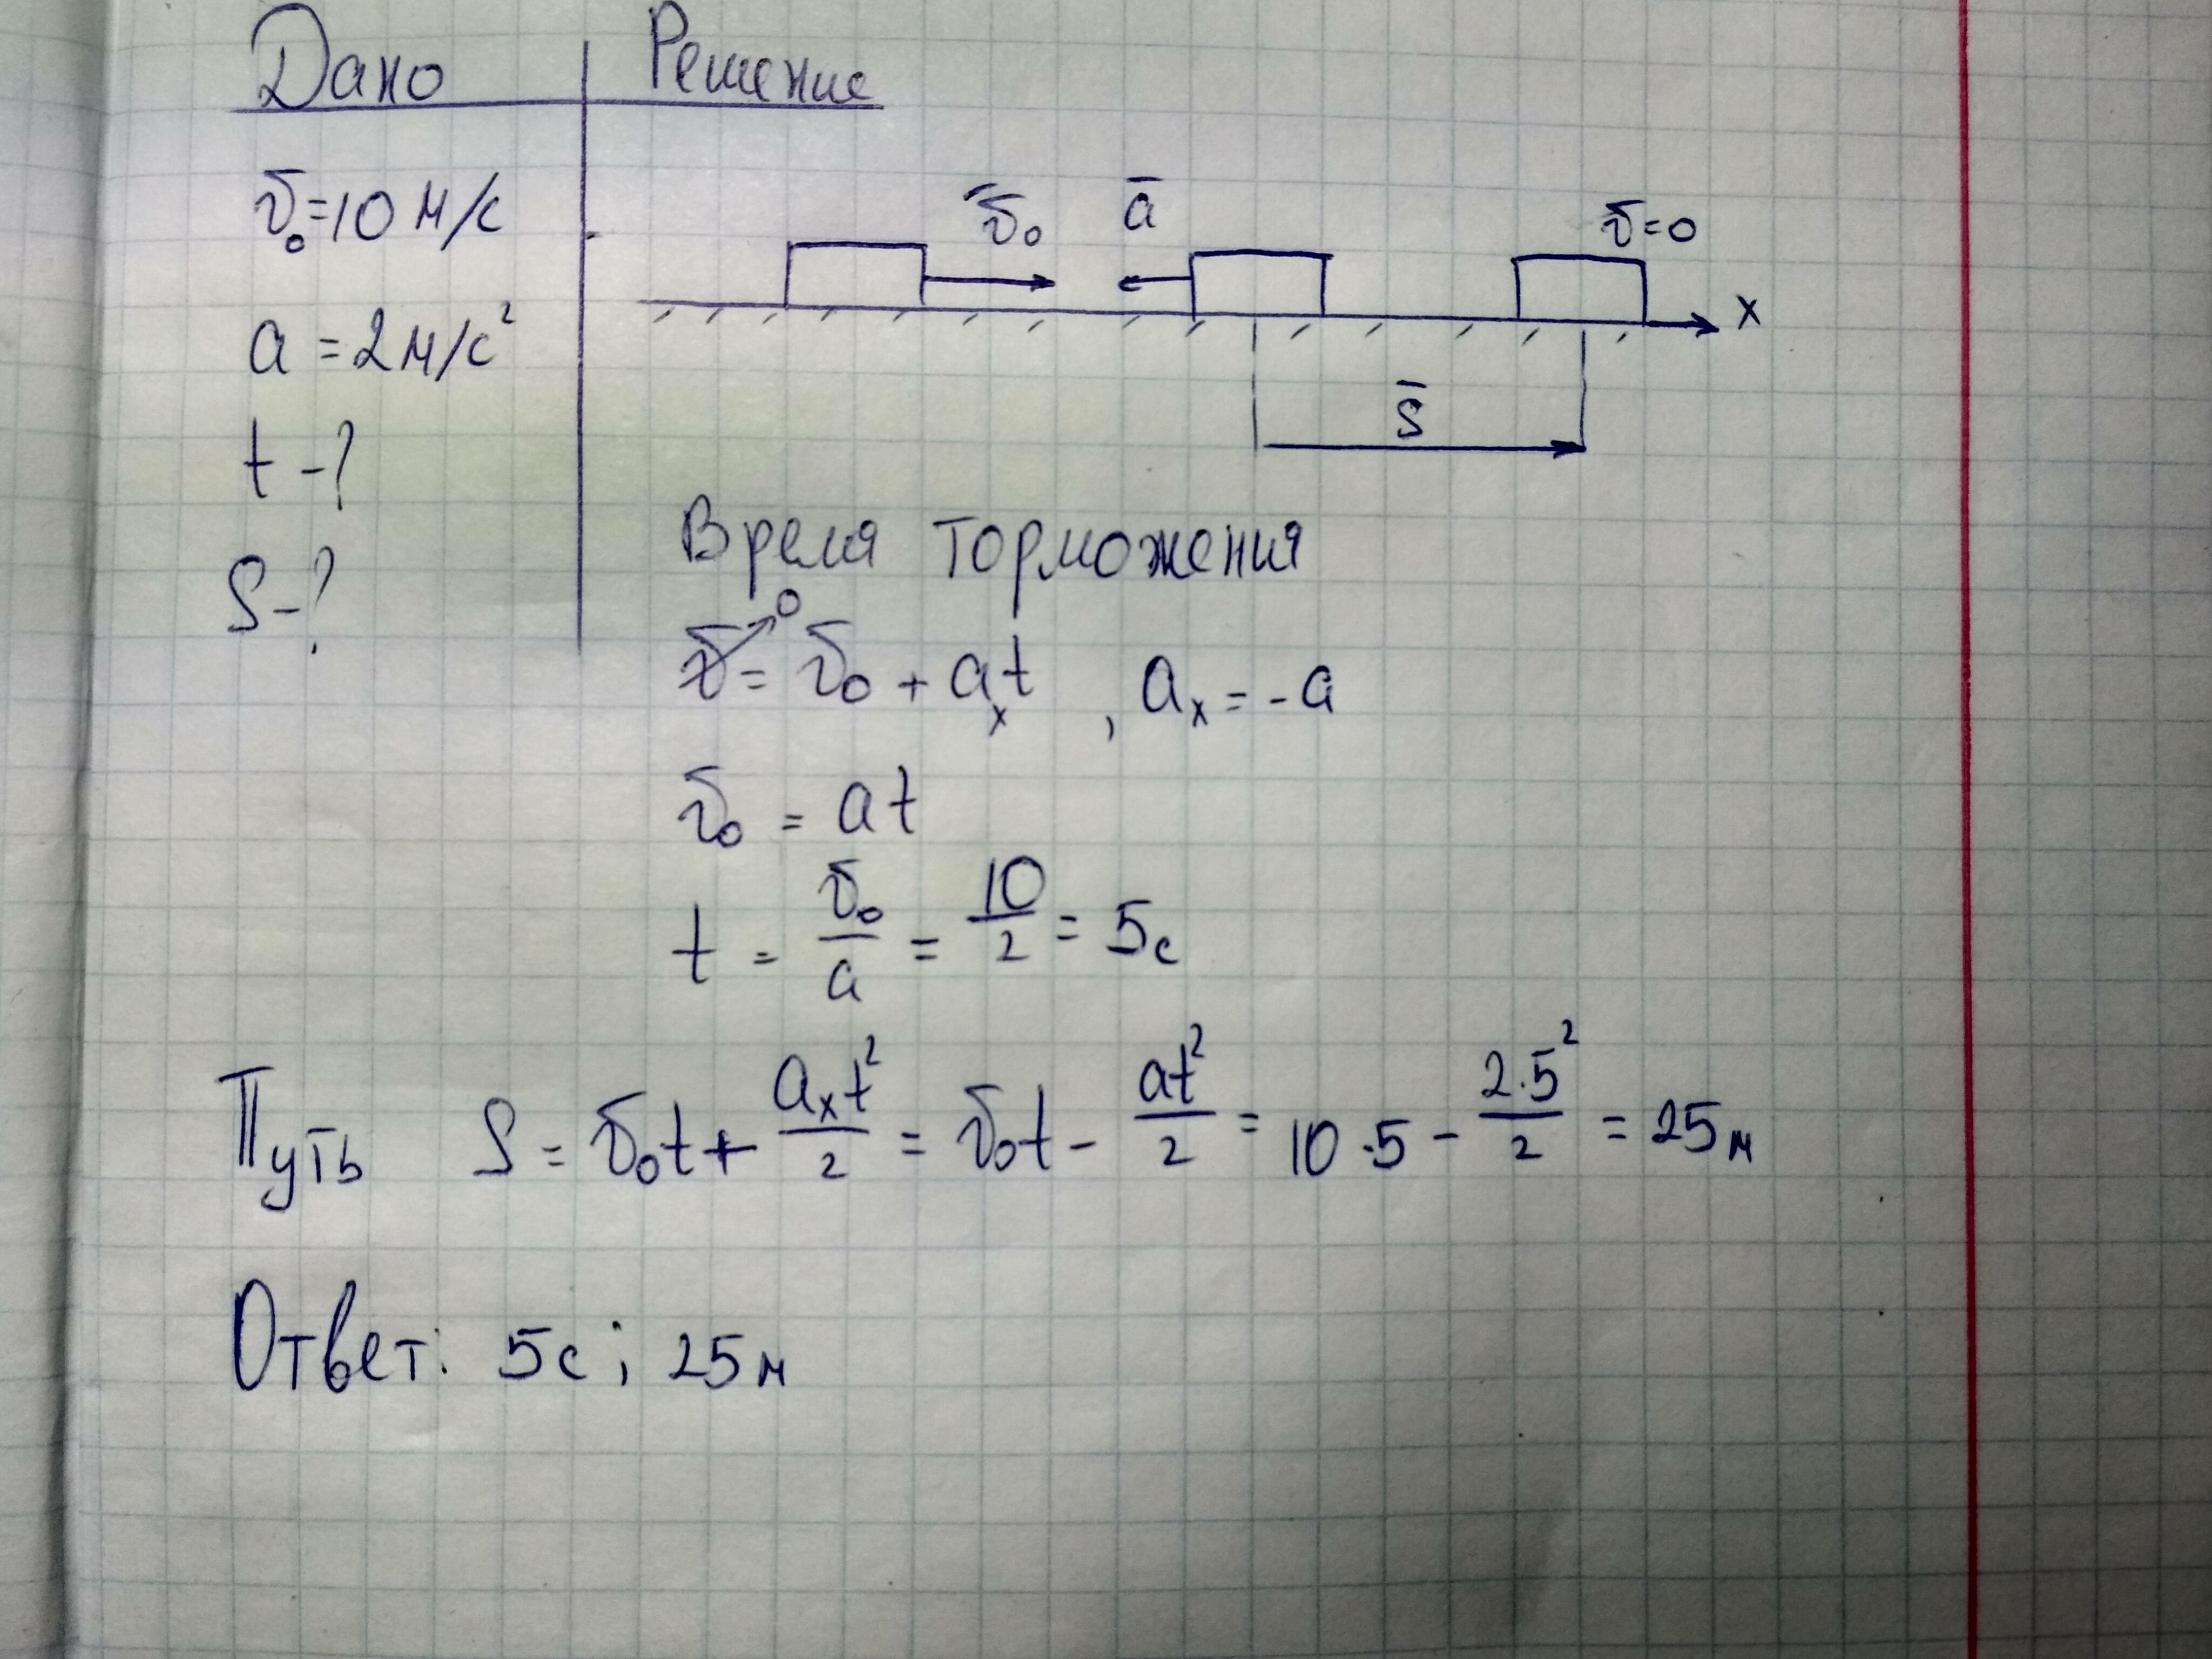 Дано Решение
v̅₀=10 м/с
a = 2 м/с²
t - ?
S - ?
v̅₀ a̅ v̅=0
x
S̅
Время торможения
v̅ = v̅₀ + aₓt , aₓ = - a
0
v̅₀ = at
t = v̅₀/a = 10/2 = 5с
Путь S = v̅₀t + aₓt²/2 = v̅₀t - at²/2 = 10·5 - 2·5²/2 = 25м
Ответ: 5с; 25м